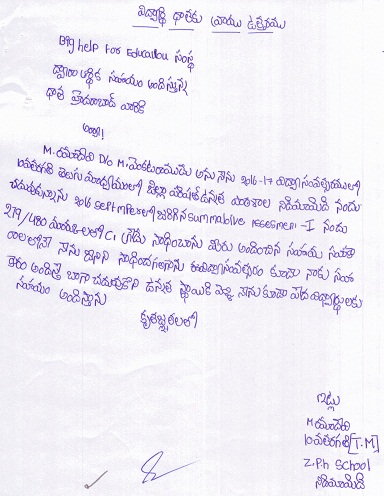 విద్యార్థి దాతకు వ్రాయు ఉత్తరము
Big help For Education సంస్థ
ద్వారా ఆర్థిక సహాయం అందిస్తున్న
దాత హైదరాబాద్ వారికి
అయ్యా!
M. యామిని D/o M. వెంకటరాముడు అను నేను 2016-17 విద్యా సంవత్సరములో
10వ తరగతి తెలుగు మాధ్యమములో జిల్లా పరిషత్ ఉన్నత పాఠశాల నిడిమామిడి నందు
చదువుతున్నాను 2016 september లో జరిగిన summative assesment - I నందు
279/480 మార్కులలో C1 గ్రేడు సాధించాను మీరు అందించిన సహాయ సహకా
రాలతోనే నేను దీనిని సాధించగలిగాను ఈ విద్యాసంవత్సరం కూడా నాకు సహ
కారం అందిస్తే బాగా చదువుకొని ఉన్నత స్థాయికి వెళ్ళి నేను కూడా పేద విద్యార్థులకు
సహాయం అందిస్తాను
కృతజ్ఞతలతో
ఇట్లు
M యామిని
10వ తరగతి [T.M]
Z.P.h School
నిడిమామిడి